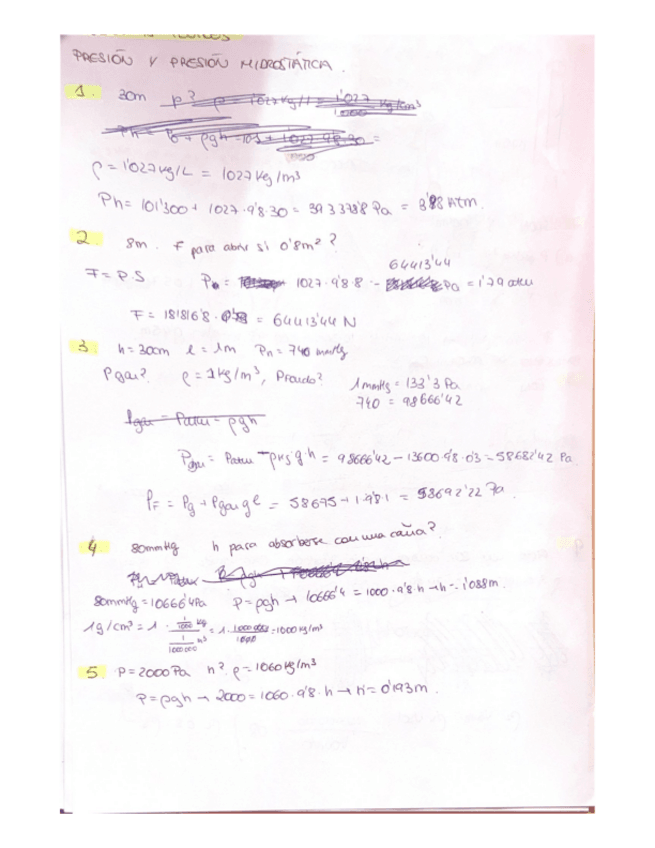 PRESIÓN Y PRESIÓN HIDROSTÁTICA.
1. 30m p?
ρ = 1'027 kg/L = 1027 kg/m³
Ph = 101'300 + 1027·9'8·30 = 393378'8 Pa = 3'88 Atm.
2. 8m. F para abrir si 0'8m²?
64413'44
F = P·S P = 1027·9'8·8 = Pa = 1'79 atm
F = 181816'8 · 0'8 = 64413'44 N
3 h = 30cm l = 1m Pn = 740 mmHg
Pgas? ρ = 1kg/m³, Pfondo? 1mmHg = 133'3 Pa
740 = 98666'42
Pgas = Patm - ρgh
Pgas = Patm - ρHg·g·h = 98666'42 - 13600·9'8·0'3 = 58682'42 Pa
PF = Pg + ρgas g l = 58695 + 1·9'81 = 58692'22 Pa.
4 80mmHg h para absorberse con una caña?
80mmHg = 10666'4Pa P = ρgh → 10666'4 = 1000·9'8·h → h = 1'088m.
1g/cm³ = 1 · 1/1000 kg / 1/1000000 m³ = 1 · 1000000/1000 = 1000 kg/m³
5 P = 2000 Pa h? ρ = 1060 kg/m³
P = ρgh → 2000 = 1060·9'8·h → h = 0'193m.